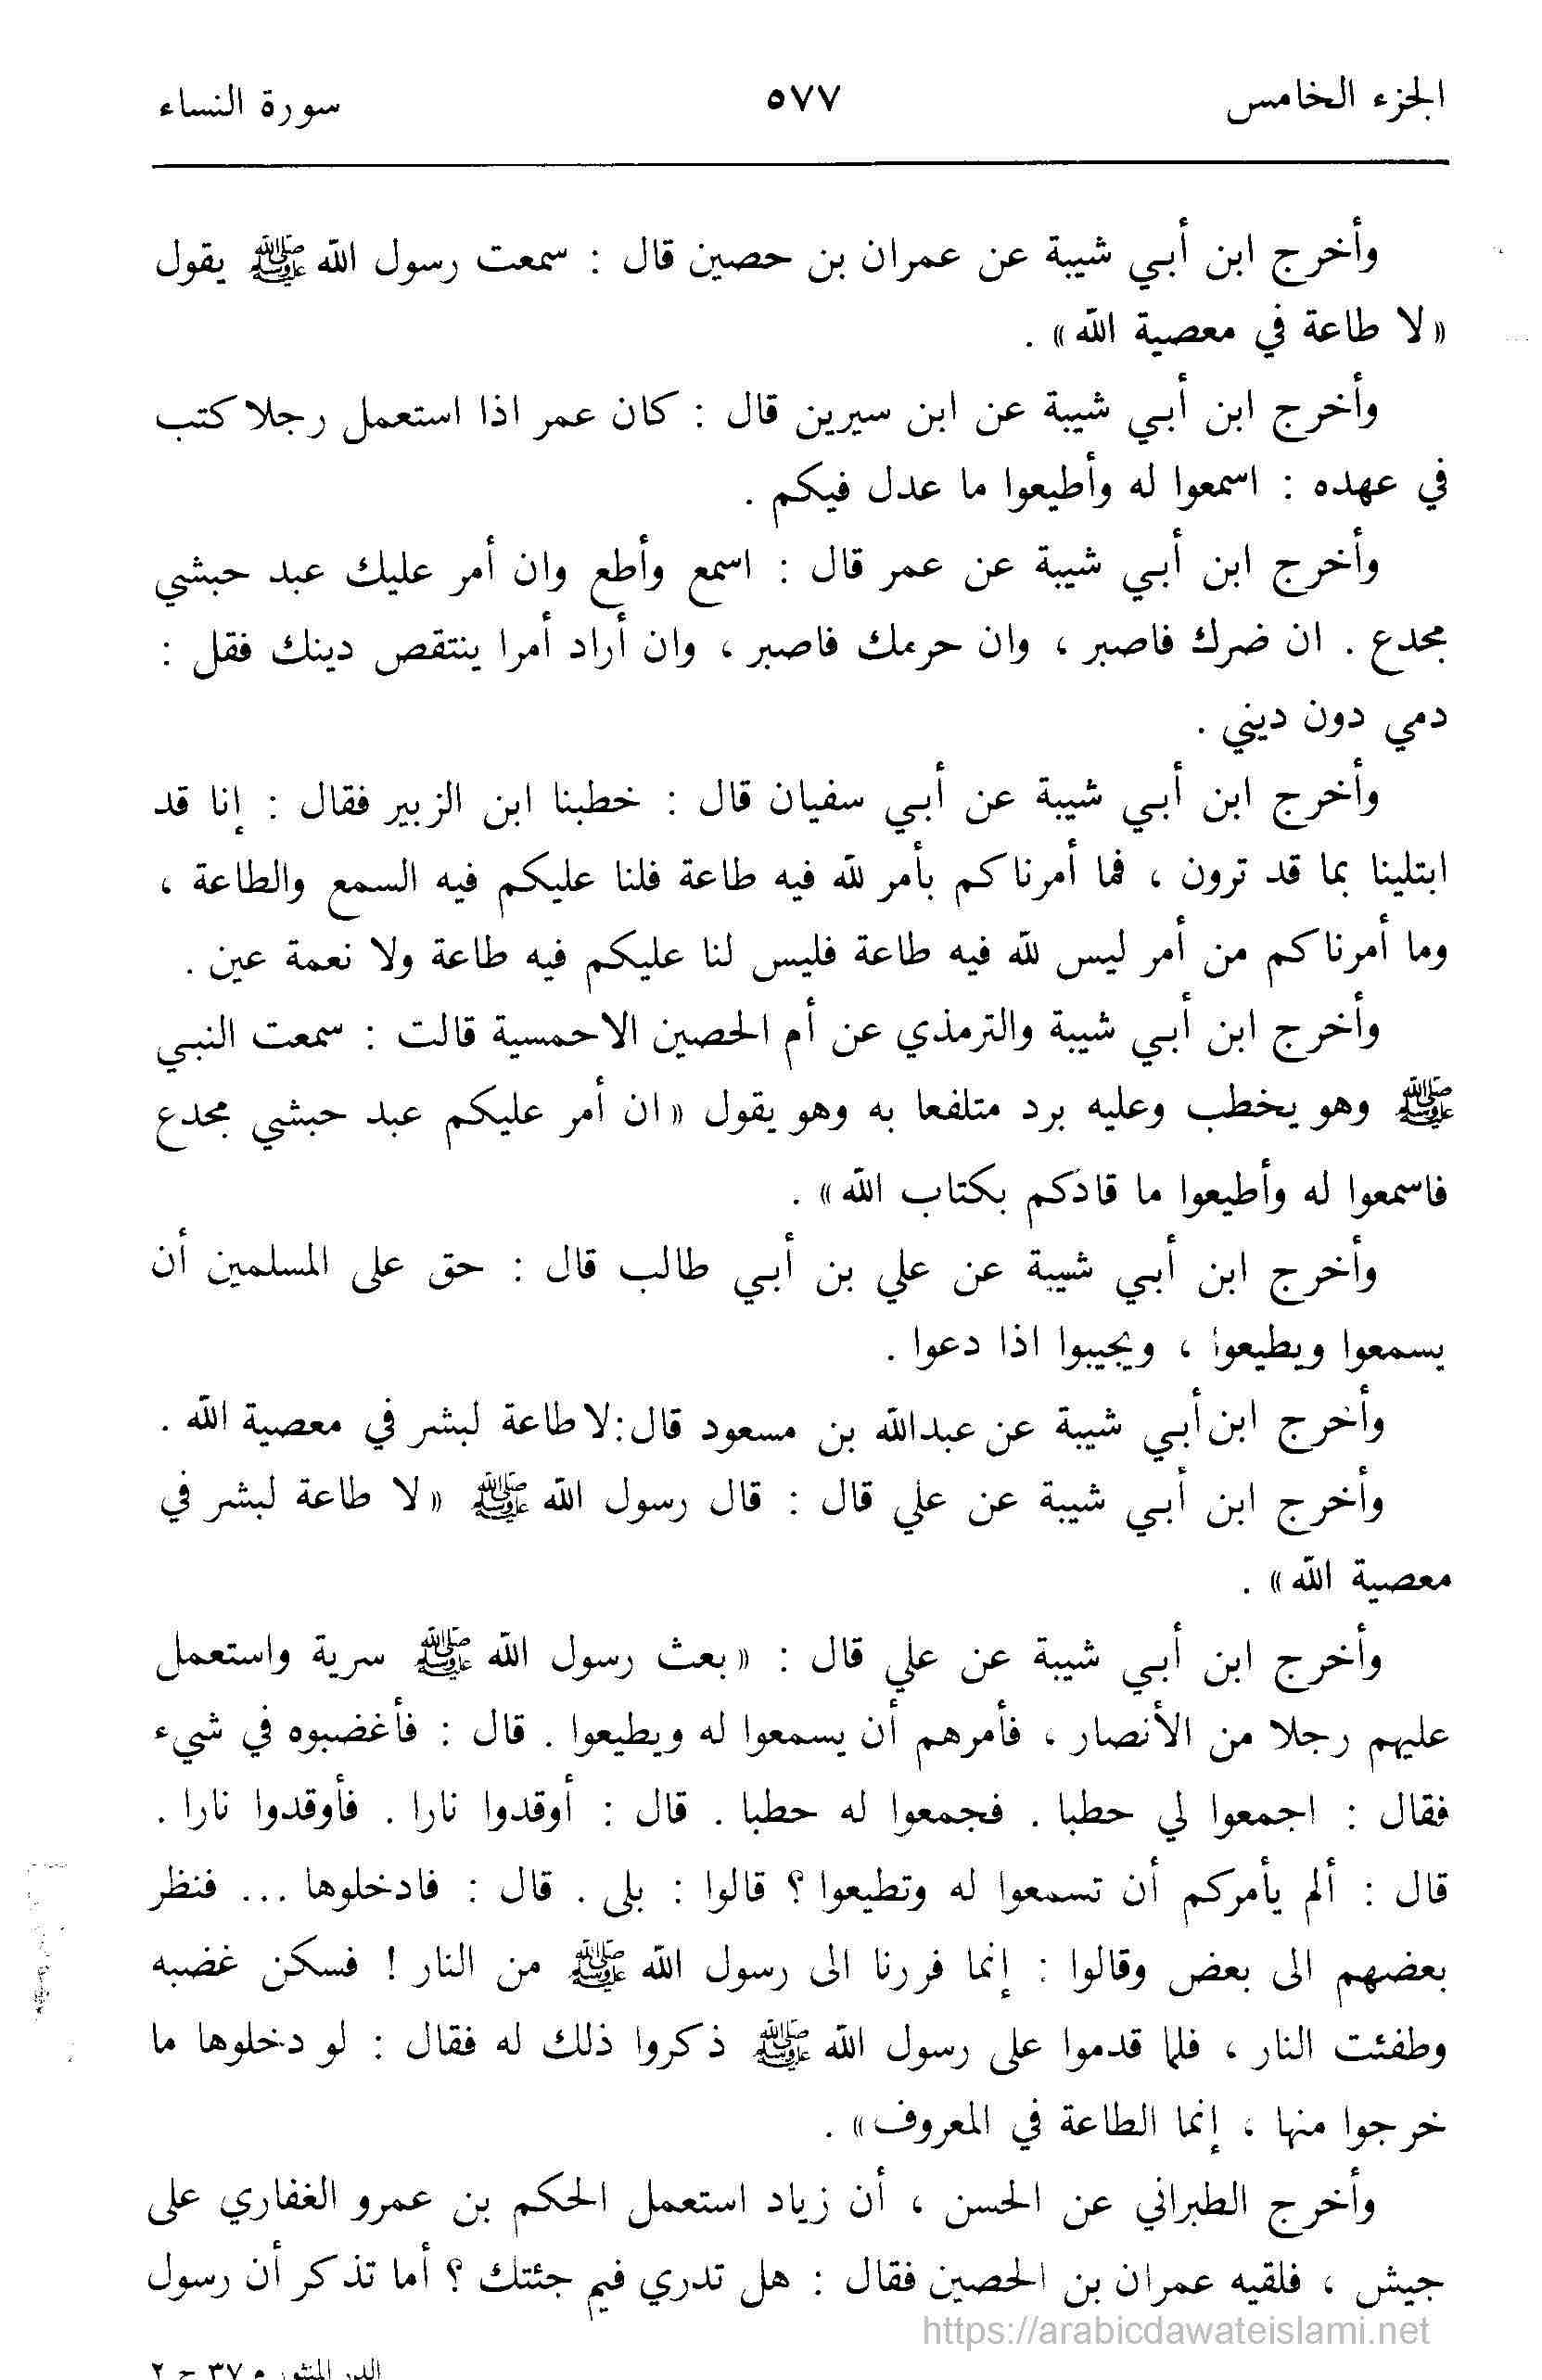 الجزء الخامس ٥٧٧ سورة النساء
وأخرج ابن أبي شيبة عن عمران بن حصين قال : سمعت رسول الله ﷺ يقول
« لا طاعة في معصية الله » .
وأخرج ابن أبي شيبة عن ابن سيرين قال : كان عمر اذا استعمل رجلا كتب
في عهده : اسمعوا له وأطيعوا ما عدل فيكم .
وأخرج ابن أبي شيبة عن عمر قال : اسمع وأطع وان أمر عليك عبد حبشي
مجدع . ان ضرك فاصبر ، وان حرمك فاصبر ، وان أراد أمرا ينتقص دينك فقل :
دمي دون ديني .
وأخرج ابن أبي شيبة عن أبي سفيان قال : خطبنا ابن الزبير فقال : إنا قد
ابتلينا بما قد ترون ، فما أمرناكم بأمر لله فيه طاعة فلنا عليكم فيه السمع والطاعة ،
وما أمرناكم من أمر ليس لله فيه طاعة فليس لنا عليكم فيه طاعة ولا نعمة عين .
وأخرج ابن أبي شيبة والترمذي عن أم الحصين الاحمسية قالت : سمعت النبي
ﷺ وهو يخطب وعليه برد متلفعا به وهو يقول « ان أمر عليكم عبد حبشي مجدع
فاسمعوا له وأطيعوا ما قادكم بكتاب الله » .
وأخرج ابن أبي شيبة عن علي بن أبي طالب قال : حق على المسلمين أن
يسمعوا ويطيعوا ، ويجيبوا اذا دعوا .
وأخرج ابن أبي شيبة عن عبدالله بن مسعود قال : لا طاعة لبشر في معصية الله .
وأخرج ابن أبي شيبة عن علي قال : قال رسول الله ﷺ « لا طاعة لبشر في
معصية الله » .
وأخرج ابن أبي شيبة عن علي قال : « بعث رسول الله ﷺ سرية واستعمل
عليهم رجلا من الأنصار ، فأمرهم أن يسمعوا له ويطيعوا . قال : فأغضبوه في شيء
فقال : اجمعوا لي حطبا . فجمعوا له حطبا . قال : أوقدوا نارا . فأوقدوا نارا .
قال : ألم يأمركم أن تسمعوا له وتطيعوا ؟ قالوا : بلى . قال : فادخلوها ... فنظر
بعضهم الى بعض وقالوا : إنما فررنا الى رسول الله ﷺ من النار ! فسكن غضبه
وطفئت النار ، فلما قدموا على رسول الله ﷺ ذكروا ذلك له فقال : لو دخلوها ما
خرجوا منها ، إنما الطاعة في المعروف » .
وأخرج الطبراني عن الحسن ، أن زياد استعمل الحكم بن عمرو الغفاري على
جيش ، فلقيه عمران بن الحصين فقال : هل تدري فيم جئتك ؟ أما تذكر أن رسول
https://arabicdawateislami.net
الدر المنثور م ٣٧ ج ٢